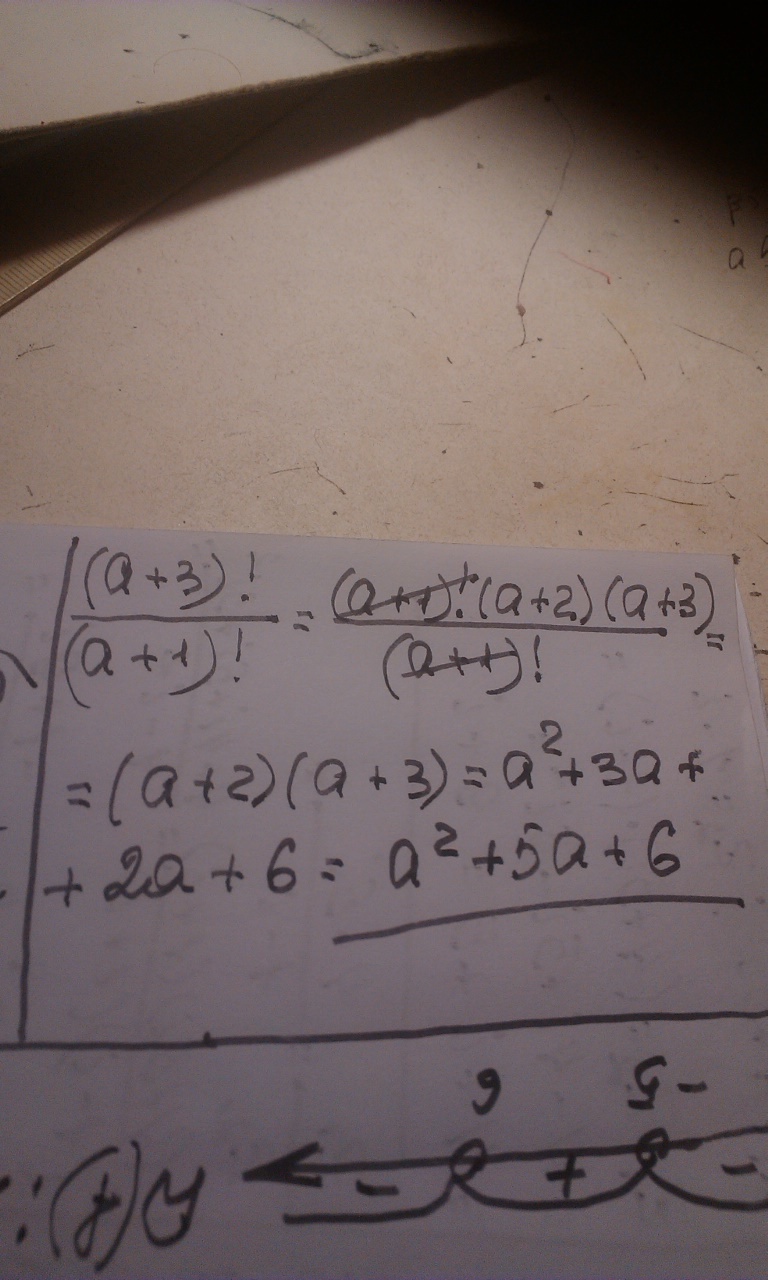 (a+3)!/(a+1)! = (a+1)!(a+2)(a+3)/(a+1)! =
=(a+2)(a+3)=a²+3a+
+2a+6= a²+5a+6
-5 6
- + -